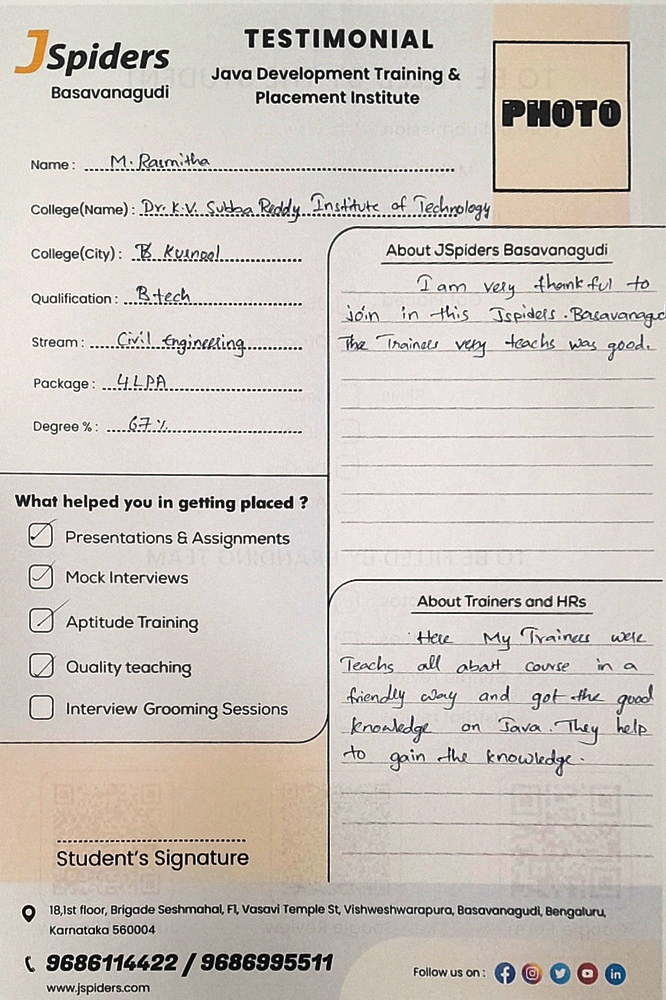 JSpiders
Basavanagudi
TESTIMONIAL
Java Development Training &
Placement Institute
PHOTO
Name : M. Rasmitha
College(Name) : Dr. K.V. Subba Reddy Institute of Technology
College(City) : Kurnool
Qualification : B.tech
Stream : Civil Engineering
Package : 4 LPA
Degree % : 67 %
What helped you in getting placed ?
Presentations & Assignments
Mock Interviews
Aptitude Training
Quality teaching
Interview Grooming Sessions
Student's Signature
About JSpiders Basavanagudi
I am very thankful to
join in this Jspiders . Basavanagud
The Trainers very teachs was good.
About Trainers and HRs
Here My Trainers were
Teachs all about course in a
friendly way and got the good
knowledge on Java. They help
to gain the knowledge.
18,1st floor, Brigade Seshmahal, F1, Vasavi Temple St, Vishweshwarapura, Basavanagudi, Bengaluru,
Karnataka 560004
9686114422 / 9686995511
www.jspiders.com
Follow us on :